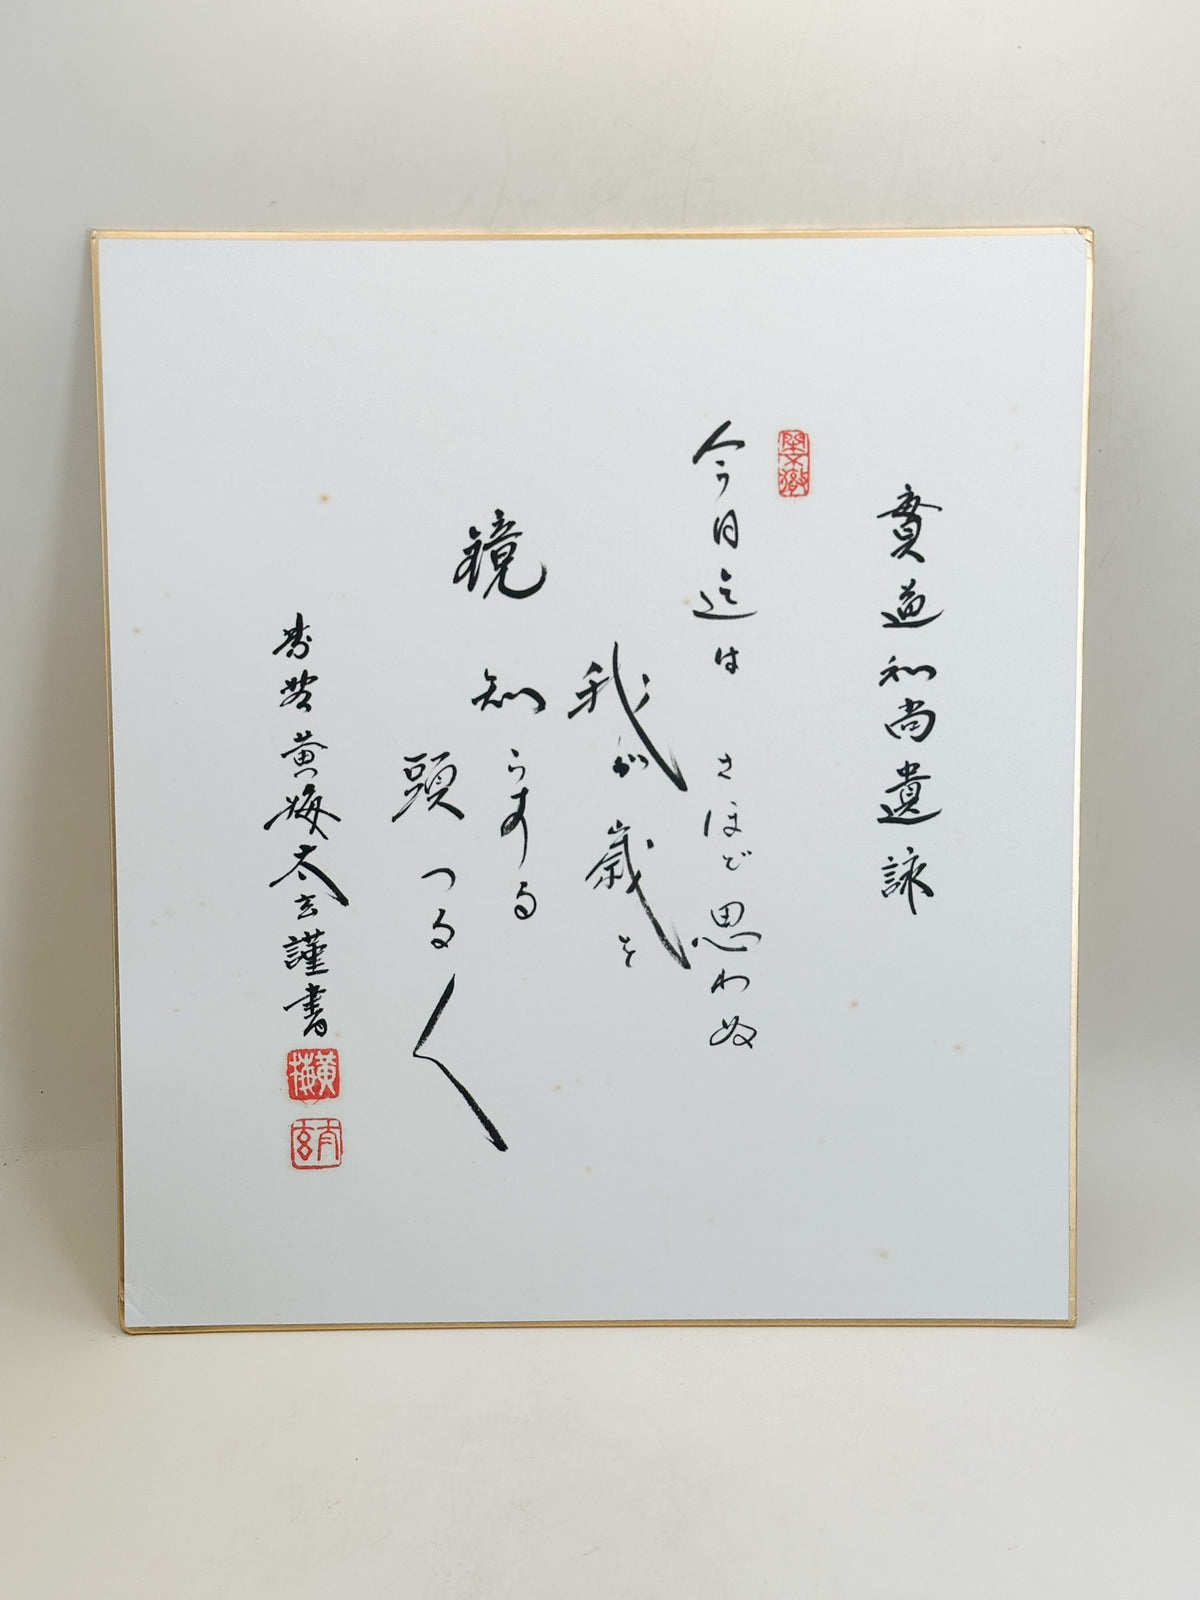 貫道和尚遺詠
今日迄は さほど思わぬ
我が歳を
鏡 知らする
頭つる〱
寿芳黄梅太玄謹書
黄梅
太玄